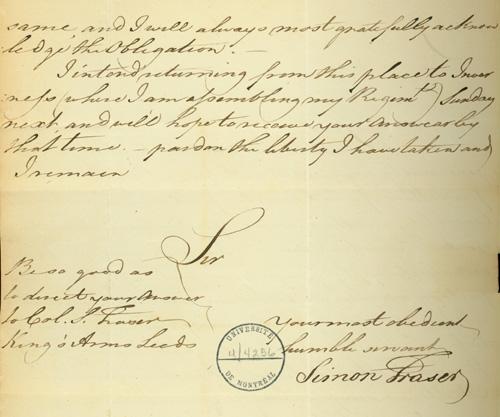 same, and I will always most gratefully acknow
ledge the Obligation. —
I intend returning from this place to Inver
ness (where I am assembling my Regimt.) Sunday
next, and will hope to receive your answear by
that time. — pardon the liberty I have taken and
I remain
Sir
Be so good as
to direct your Answer
to Col. S. Fraser
King's Arms Leeds
your most obedient
humble servant
Simon Fraser
UNIVERSITÉ
4/4256
DE MONTRÉAL